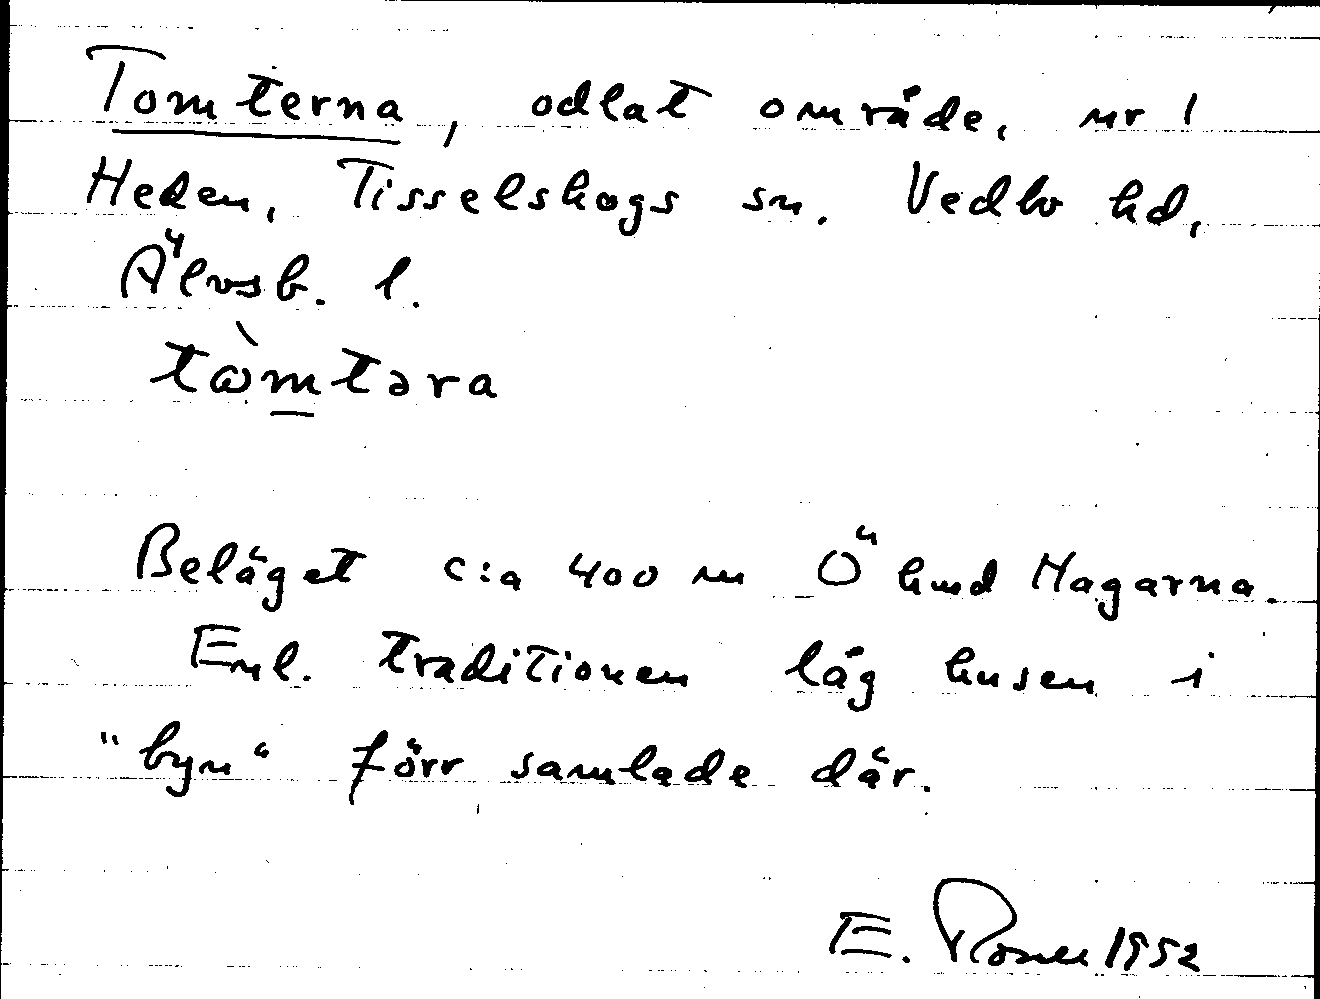 Tomterna, odlat område, nr 1
Heden, Tisselskogs sn. Vedbo hd,
Älvsb. l.
tὼmtəra
Beläget c:a 400 m Ö hmd Hagarna.
Enl. traditionen låg husen i
"byn" förr samlade där.
E. Rosell 1952